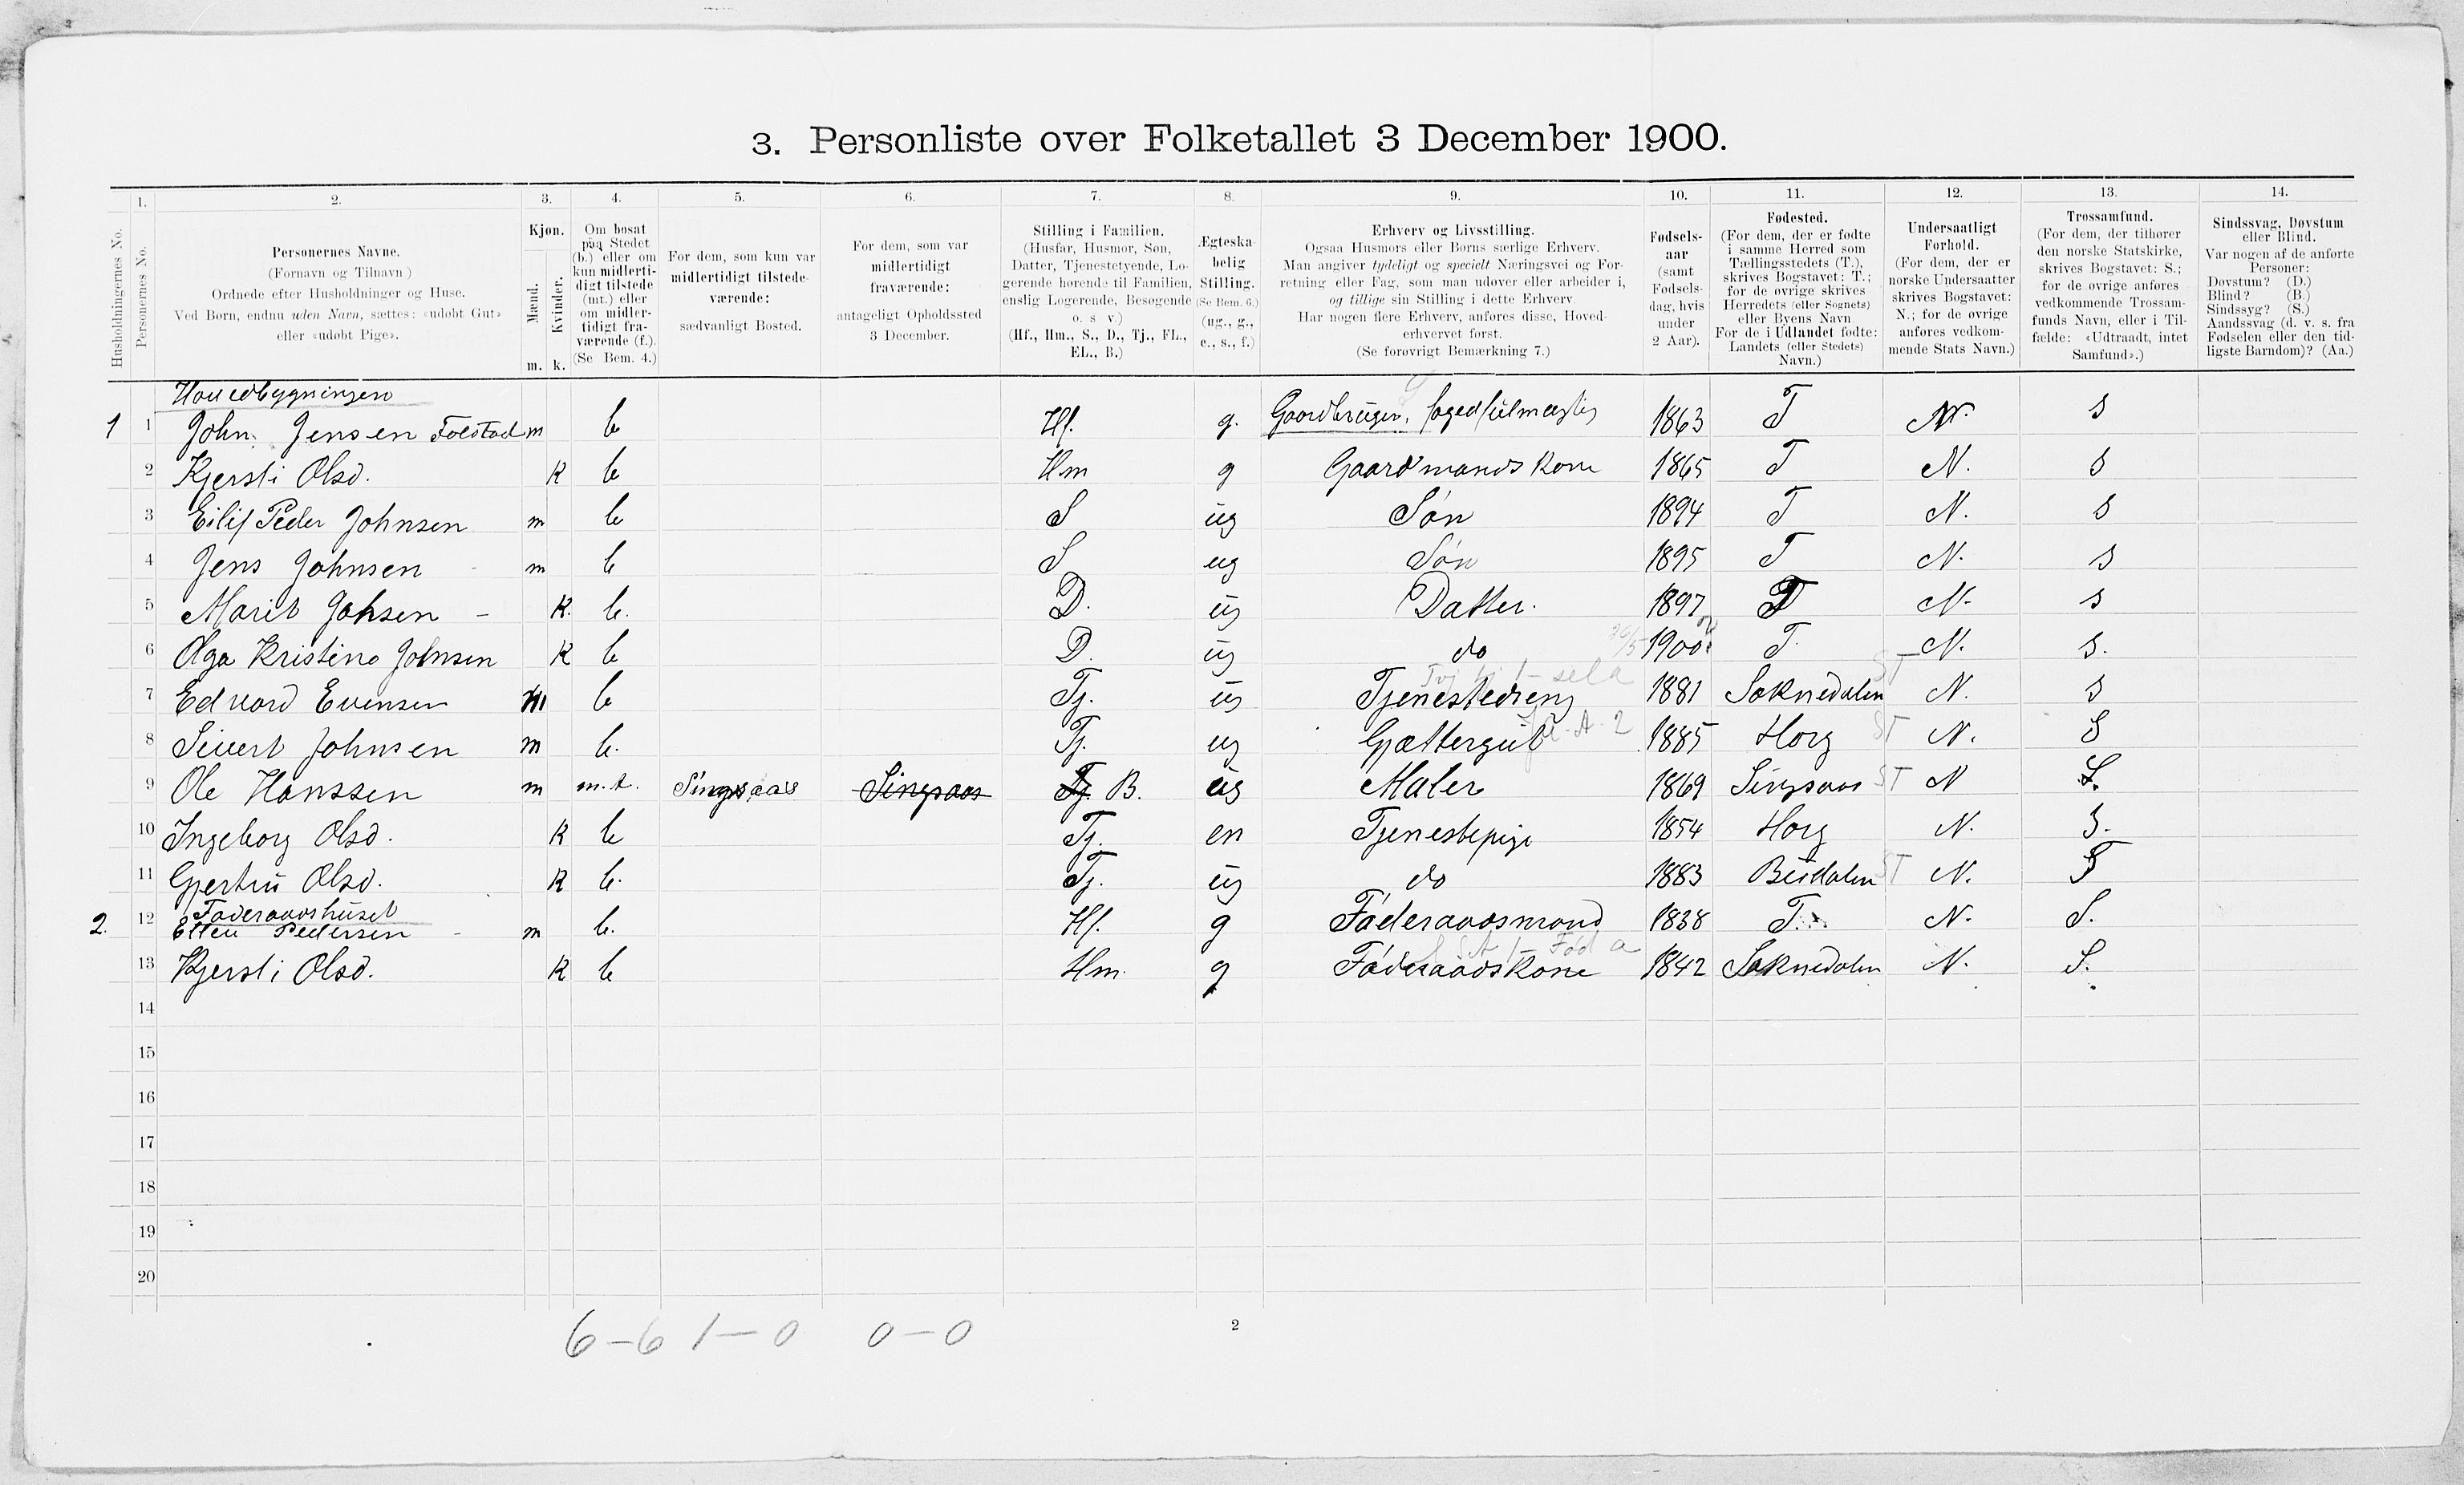 3. Personliste over Folketallet 3 December 1900.
1. 2. 3. 4. 5. 6. 7. 8. 9. 10. 11. 12. 13. 14.
Husholdningernes No.
Personernes No.
Personernes Navne.
(Fornavn og Tilnavn)
Ordnede efter Husholdninger og Huse.
Ved Børn, endnu uden Navn, sættes: «udøbt Gut»
eller «udøbt Pige».
Kjøn.
Mænd.
Kvinder.
m. k.
Om bosat
paa Stedet
(b.) eller om
kun midlerti-
digt tilstede
(mt.) eller
om midler-
tidigt fra-
værende (f.).
(Se Bem. 4.)
For dem, som kun var
midlertidigt tilstede-
værende:
sædvanligt Bosted.
For dem, som var
midlertidigt
fraværende:
antageligt Opholdssted
3 December.
Stilling i Familien.
(Husfar, Husmor, Søn,
Datter, Tjenestetyende, Lo-
gerende hørende til Familien,
enslig Logerende, Besøgende
o. s. v.)
(Hf., Hm., S., D., Tj., FL.,
EL., B.)
Ægteska-
belig
Stilling.
(Se Bem. 6.)
(ug., g.,
e., s., f.)
Erhverv og Livsstilling.
Ogsaa Husmors eller Børns særlige Erhverv.
Man angiver tydeligt og specielt Næringsvei og For-
retning eller Fag, som man udøver eller arbeider i,
og tillige sin Stilling i dette Erhverv.
Har nogen flere Erhverv, anføres disse, Hoved-
erhvervet først.
(Se forøvrigt Bemærkning 7.)
Fødsels-
aar
(samt
Fødsels-
dag, hvis
under
2 Aar).
Fødested.
(For dem, der er fødte
i samme Herred som
Tællingsstedets (T.),
skrives Bogstavet: T.;
for de øvrige skrives
Herredets (eller Sognets)
eller Byens Navn.
For de i Udlandet fødte:
Landets (eller Stedets)
Navn.)
Undersaatligt
Forhold.
(For dem, der er
norske Undersaatter
skrives Bogstavet:
N.; for de øvrige
anføres vedkom-
mende Stats Navn.)
Trossamfund.
(For dem, der tilhører
den norske Statskirke,
skrives Bogstavet: S.;
for de øvrige anføres
vedkommende Trossam-
funds Navn, eller i Til-
fælde: «Udtraadt, intet
Samfund».)
Sindssvag, Døvstum
eller Blind.
Var nogen af de anførte
Personer:
Døvstum? (D.)
Blind? (B.)
Sindssyg? (S.)
Aandssvag (d. v. s. fra
Fødselen eller den tid-
ligste Barndom)? (Aa.)
Hovedbygningen
1 1 John Jensen Folstad m b Hf. g. Gaardbruger, fogedfulmægtig 1863 T N. S
2 Kjersti Olsd. K b Hm g Gaardmandskone 1865 T N. S
3 Eilif Peder Johnsen m b S ug Søn 1894 T N. S
4 Jens Johnsen m b S ug Søn 1895 T N. S
5 Marit Johsen - K. b. D. ug Datter. 1897 T N. S
6 Olga Kristine Johnsen K b D. ug do 30/5 1900 T. N. S.
7 Edvard Evensen m b Tj. ug Tjenestedreng 1881 Soknedalen ST N. S
8 Sivert Johnsen m b. Tj. ug Gjættergut 1885 Horg ST N. S
9 Ole Hanssen m m.t. Singsaas Singsaas Tj. B. ug Maler 1869 Singsaas ST N S.
10 Ingeborg Olsd. K b Tj. en Tjenestepige 1854 Horg N. S.
11 Gjertru Olsd. K b. Tj. ug do 1883 Budalen ST N. S
Føderaadshuset
2. 12 Ellev Pedersen m b. Hf. g Føderaadsmand 1838 T. N. S.
13 Kjersti Olsd. K b Hm. g Føderaadskone 1842 Soknedalen N. S.
14
15
16
17
18
19
20
6-6 1-0 0-0
2